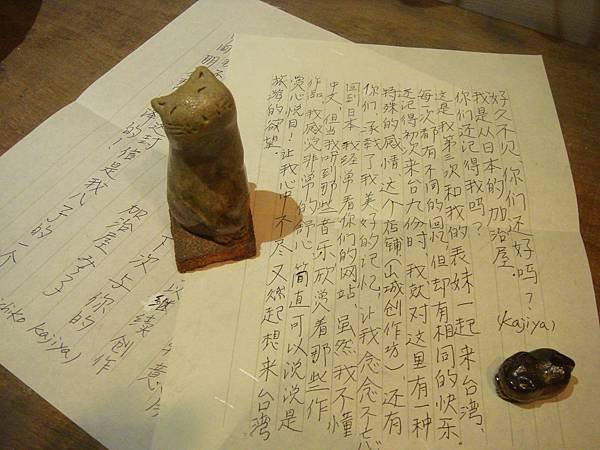 好久不见,你们还好吗?
我是从日本的加治屋. (Kajiya)
你们还记得我吗?
这是我第三次和我的表妹一起来台湾,
每一次都有不同的回忆但却有相同的快乐.
还记得初次来台九份时,我就对这里有一种
特殊的感情、这个店铺(山城创作坊),还有
你们,承载了我美好的记忆,让我念念不忘
回到日本,我经常看你们的网站 虽然我不懂
中文,但当我听到那些音乐 欣赏着那些作
作品 我感觉非常的舒心 简直可以说说是
赏心悦目!让我心中不尽又燃起想来台湾
旅游的欲望.
继续
下次与你的创作
加治屋
Kajiya)